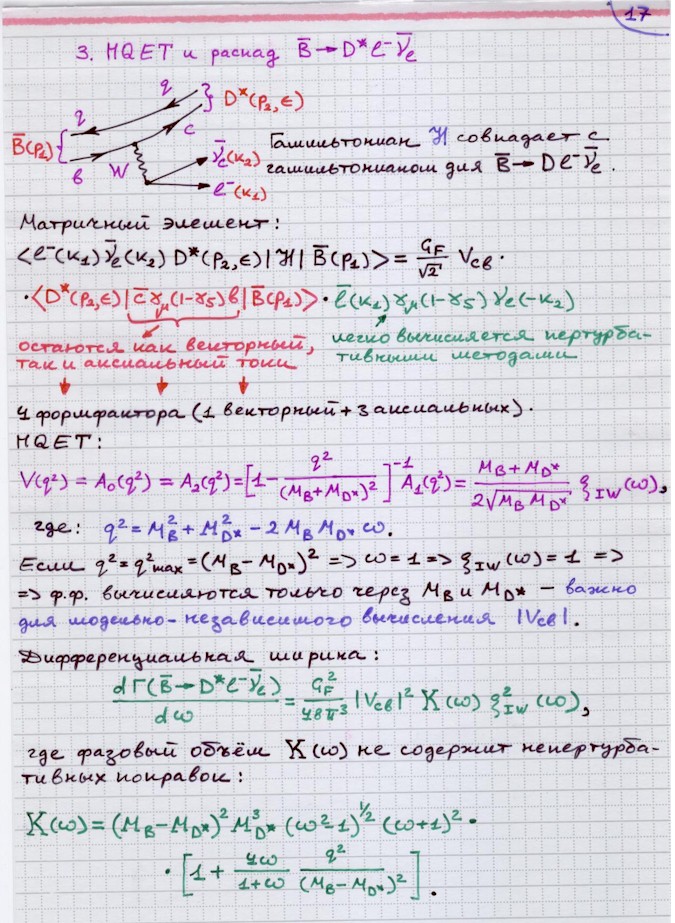 17
3. HQET и распад B̄→D* ℓ⁻ ν̄ₑ
q q } D*(p₂,ϵ)
B̄(p₁) { c
в W ν̄ₑ(k₂)
ℓ⁻(k₁)
Гамильтониан ℋ совпадает с
гамильтонианом для B̄→D ℓ⁻ ν̄ₑ.
Матричный элемент:
<ℓ⁻(k₁) ν̄ₑ(k₂) D*(p₂,ϵ)|ℋ|B̄(p₁)> = G_F/√2 V_св ·
· <D*(p₂,ϵ)|c̄ γ_μ(1-γ₅) в|B̄(p₁)> · ℓ̄(k₁) γ_μ(1-γ₅) νₑ(-k₂)
остаются как векторный,
так и аксиальный токи
легко вычисляется пертурба-
тивными методами
4 формфактора (1 векторный + 3 аксиальных).
HQET:
V(q²) = A₀(q²) = A₂(q²) = [1 - q²/(M_B+M_D*)²]⁻¹ A₁(q²) = (M_B+M_D*)/(2√(M_B M_D*)) ξ_IW(ω),
где: q² = M_B² + M_D*² - 2 M_B M_D* ω.
Если q² = q²_max = (M_B - M_D*)² => ω = 1 => ξ_IW(ω) = 1 =>
=> ф.ф. вычисляются только через M_B и M_D* – важно
для модельно-независимого вычисления |V_св|.
Дифференциальная ширина:
dΓ(B̄→D* ℓ⁻ ν̄ₑ)/dω = G_F²/48π³ |V_св|² K(ω) ξ²_IW(ω),
где фазовый объём K(ω) не содержит непертурба-
тивных поправок:
K(ω) = (M_B - M_D*)² M³_D* (ω²-1)^1/2 (ω+1)² ·
· [1 + 4ω/(1+ω) q²/(M_B - M_D*)²].